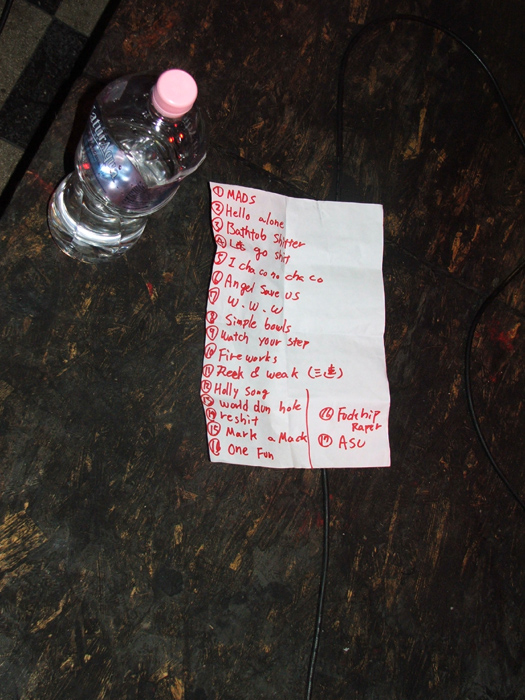 ① MADS
② Hello alone
③ Bathtob Shitter
④ Let's go shit
⑤ I cha co no cha co
⑥ Angel save us
⑦ W.W.W
⑧ Simple bowls
⑨ watch your step
⑩ Fire works
⑪ Reek & weak (三連)
⑫ Holly song
⑬ world dun hole
⑭ reshit
⑮ Mark a Mack
⑯ One Fun
⑯ Fuckhip
Raper
⑰ ASU